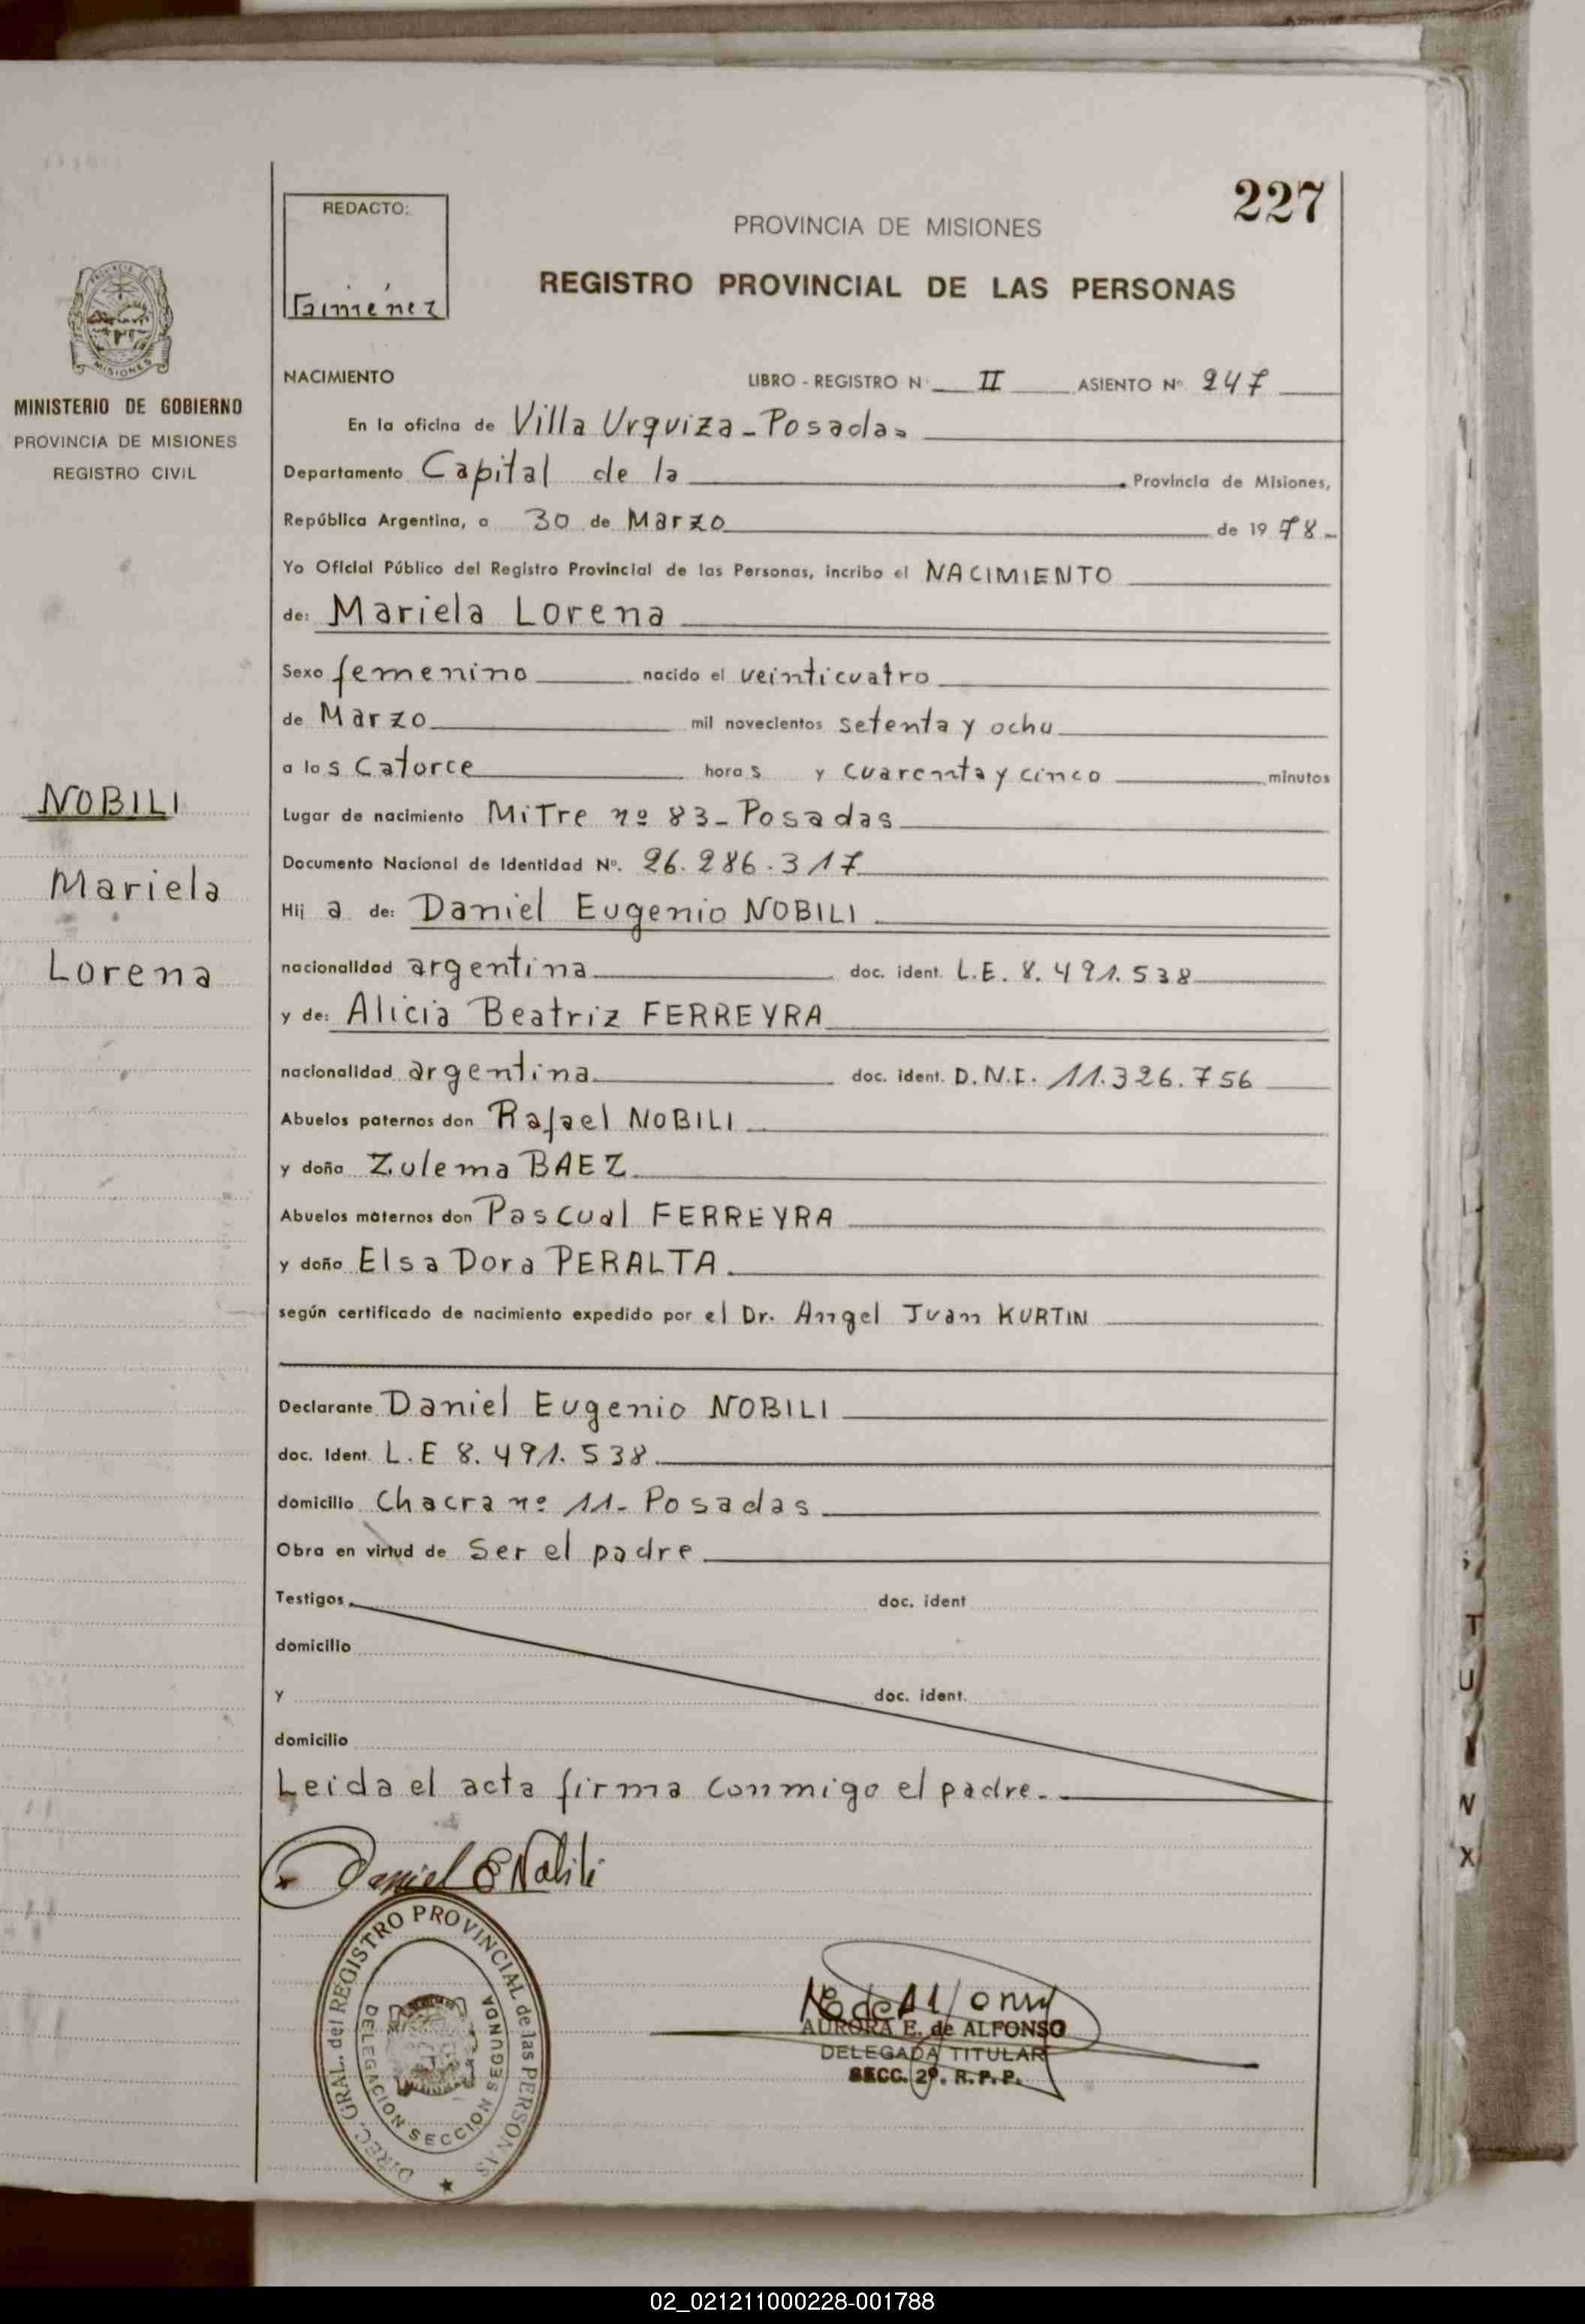 227
REDACTO:
Giménez
PROVINCIA DE MISIONES
REGISTRO PROVINCIAL DE LAS PERSONAS
MISIONES
MINISTERIO DE GOBIERNO
PROVINCIA DE MISIONES
REGISTRO CIVIL
NOBILI
Mariela
Lorena
NACIMIENTO LIBRO - REGISTRO N II ASIENTO Nº 247
En la oficina de Villa Urquiza - Posadas
Departamento Capital de la Provincia de Misiones,
República Argentina, a 30 de Marzo de 19 78-
Yo Oficial Público del Registro Provincial de las Personas, incribo el NACIMIENTO
de: Mariela Lorena
Sexo femenino nacido el veinticuatro
de Marzo mil novecientos setenta y ocho
a las Catorce horas y cuarenta y cinco minutos
Lugar de nacimiento Mitre nº 83 - Posadas
Documento Nacional de Identidad Nº. 26.286.317
Hij a de: Daniel Eugenio NOBILI
nacionalidad argentina doc. ident. L.E. 8.491.538
y de: Alicia Beatriz FERREYRA
nacionalidad argentina doc. ident. D.N.I. 11.326.756
Abuelos paternos don Rafael NOBILI
y doña Zulema BAEZ
Abuelos maternos don Pascual FERREYRA
y doña Elsa Dora PERALTA
según certificado de nacimiento expedido por el Dr. Angel Juan KURTIN
Declarante Daniel Eugenio NOBILI
doc. Ident. L.E 8.491.538
domicilio Chacra nº 11 - Posadas
Obra en virtud de Ser el padre
Testigos doc. ident
domicilio
y doc. ident.
domicilio
Leida el acta firma conmigo el padre.-
Daniel E Nobili
DIREC. GRAL. del REGISTRO PROVINCIAL de las PERSONAS
DELEGACION SECCION SEGUNDA
AURORA E. de ALFONSO
DELEGADA TITULAR
SECC. 2º. R.P.P.
02_021211000228-001788